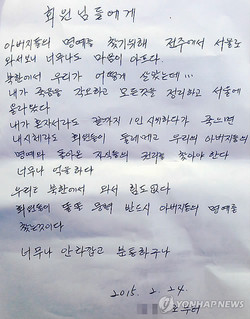 회원님들에게
아버지들의 명예를 찾기위해 전주에서 서울로
와서보니 너무나도 마음이 아프다.
북한에서 우리가 어떻게 살았는데...
내가 죽음을 각오하고 모든것을 정리하고 서울에
올라왔다
내가 혼자서라도 끝까지 1인시위하다가 죽으면
내시체라도 회원들이 둘러메고 우리의 아버지들의
명예와 돌아온 자식들의 권리를 찾아야 한다
너무나 억울하다
우리는 북한에서 와서 힘도없다
회원들이 똘똘 뭉쳐 반드시 아버지들의 명예를
찾을것이다
너무나 안타깝고 분통하구나
2015. 2. 24.
로부터
YONHAP NEWS